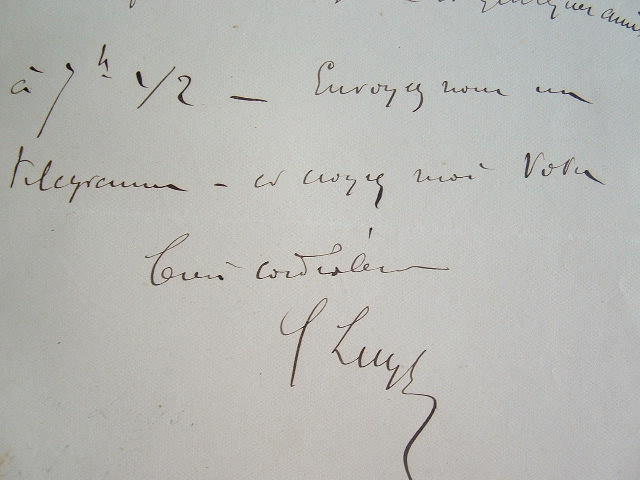 quelques amis
à 7h 1/2 — Envoyez nous un
télégramme - et croyez moi Votre
bien cordialem
J Luys